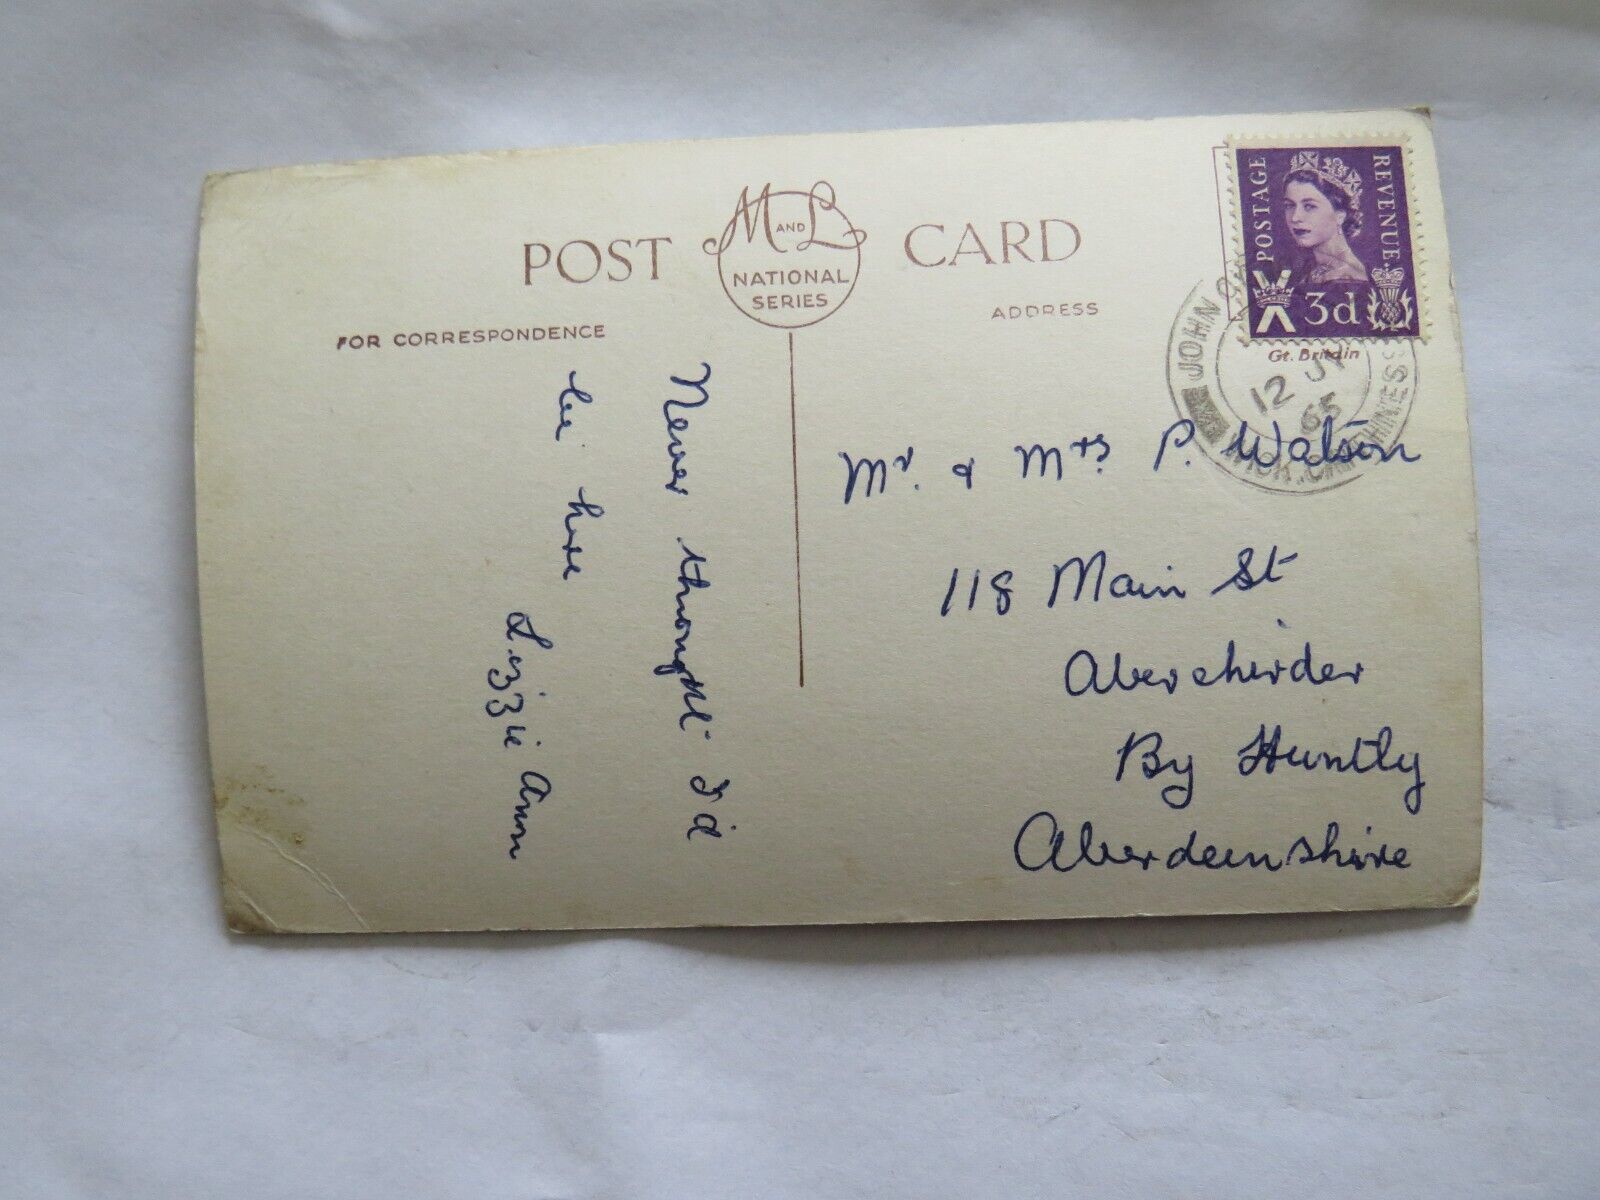 POST CARD
M AND L
NATIONAL
SERIES
FOR CORRESPONDENCE
ADDRESS
POSTAGE
REVENUE
3d
Gt. Britain
JOHN
12 JY
65
WICK. CAITHNESS
Never thought I'd
be here
Lizzie Ann
Mr. & Mrs P. Watson
118 Main St
Aberchirder
By Huntly
Aberdeenshire